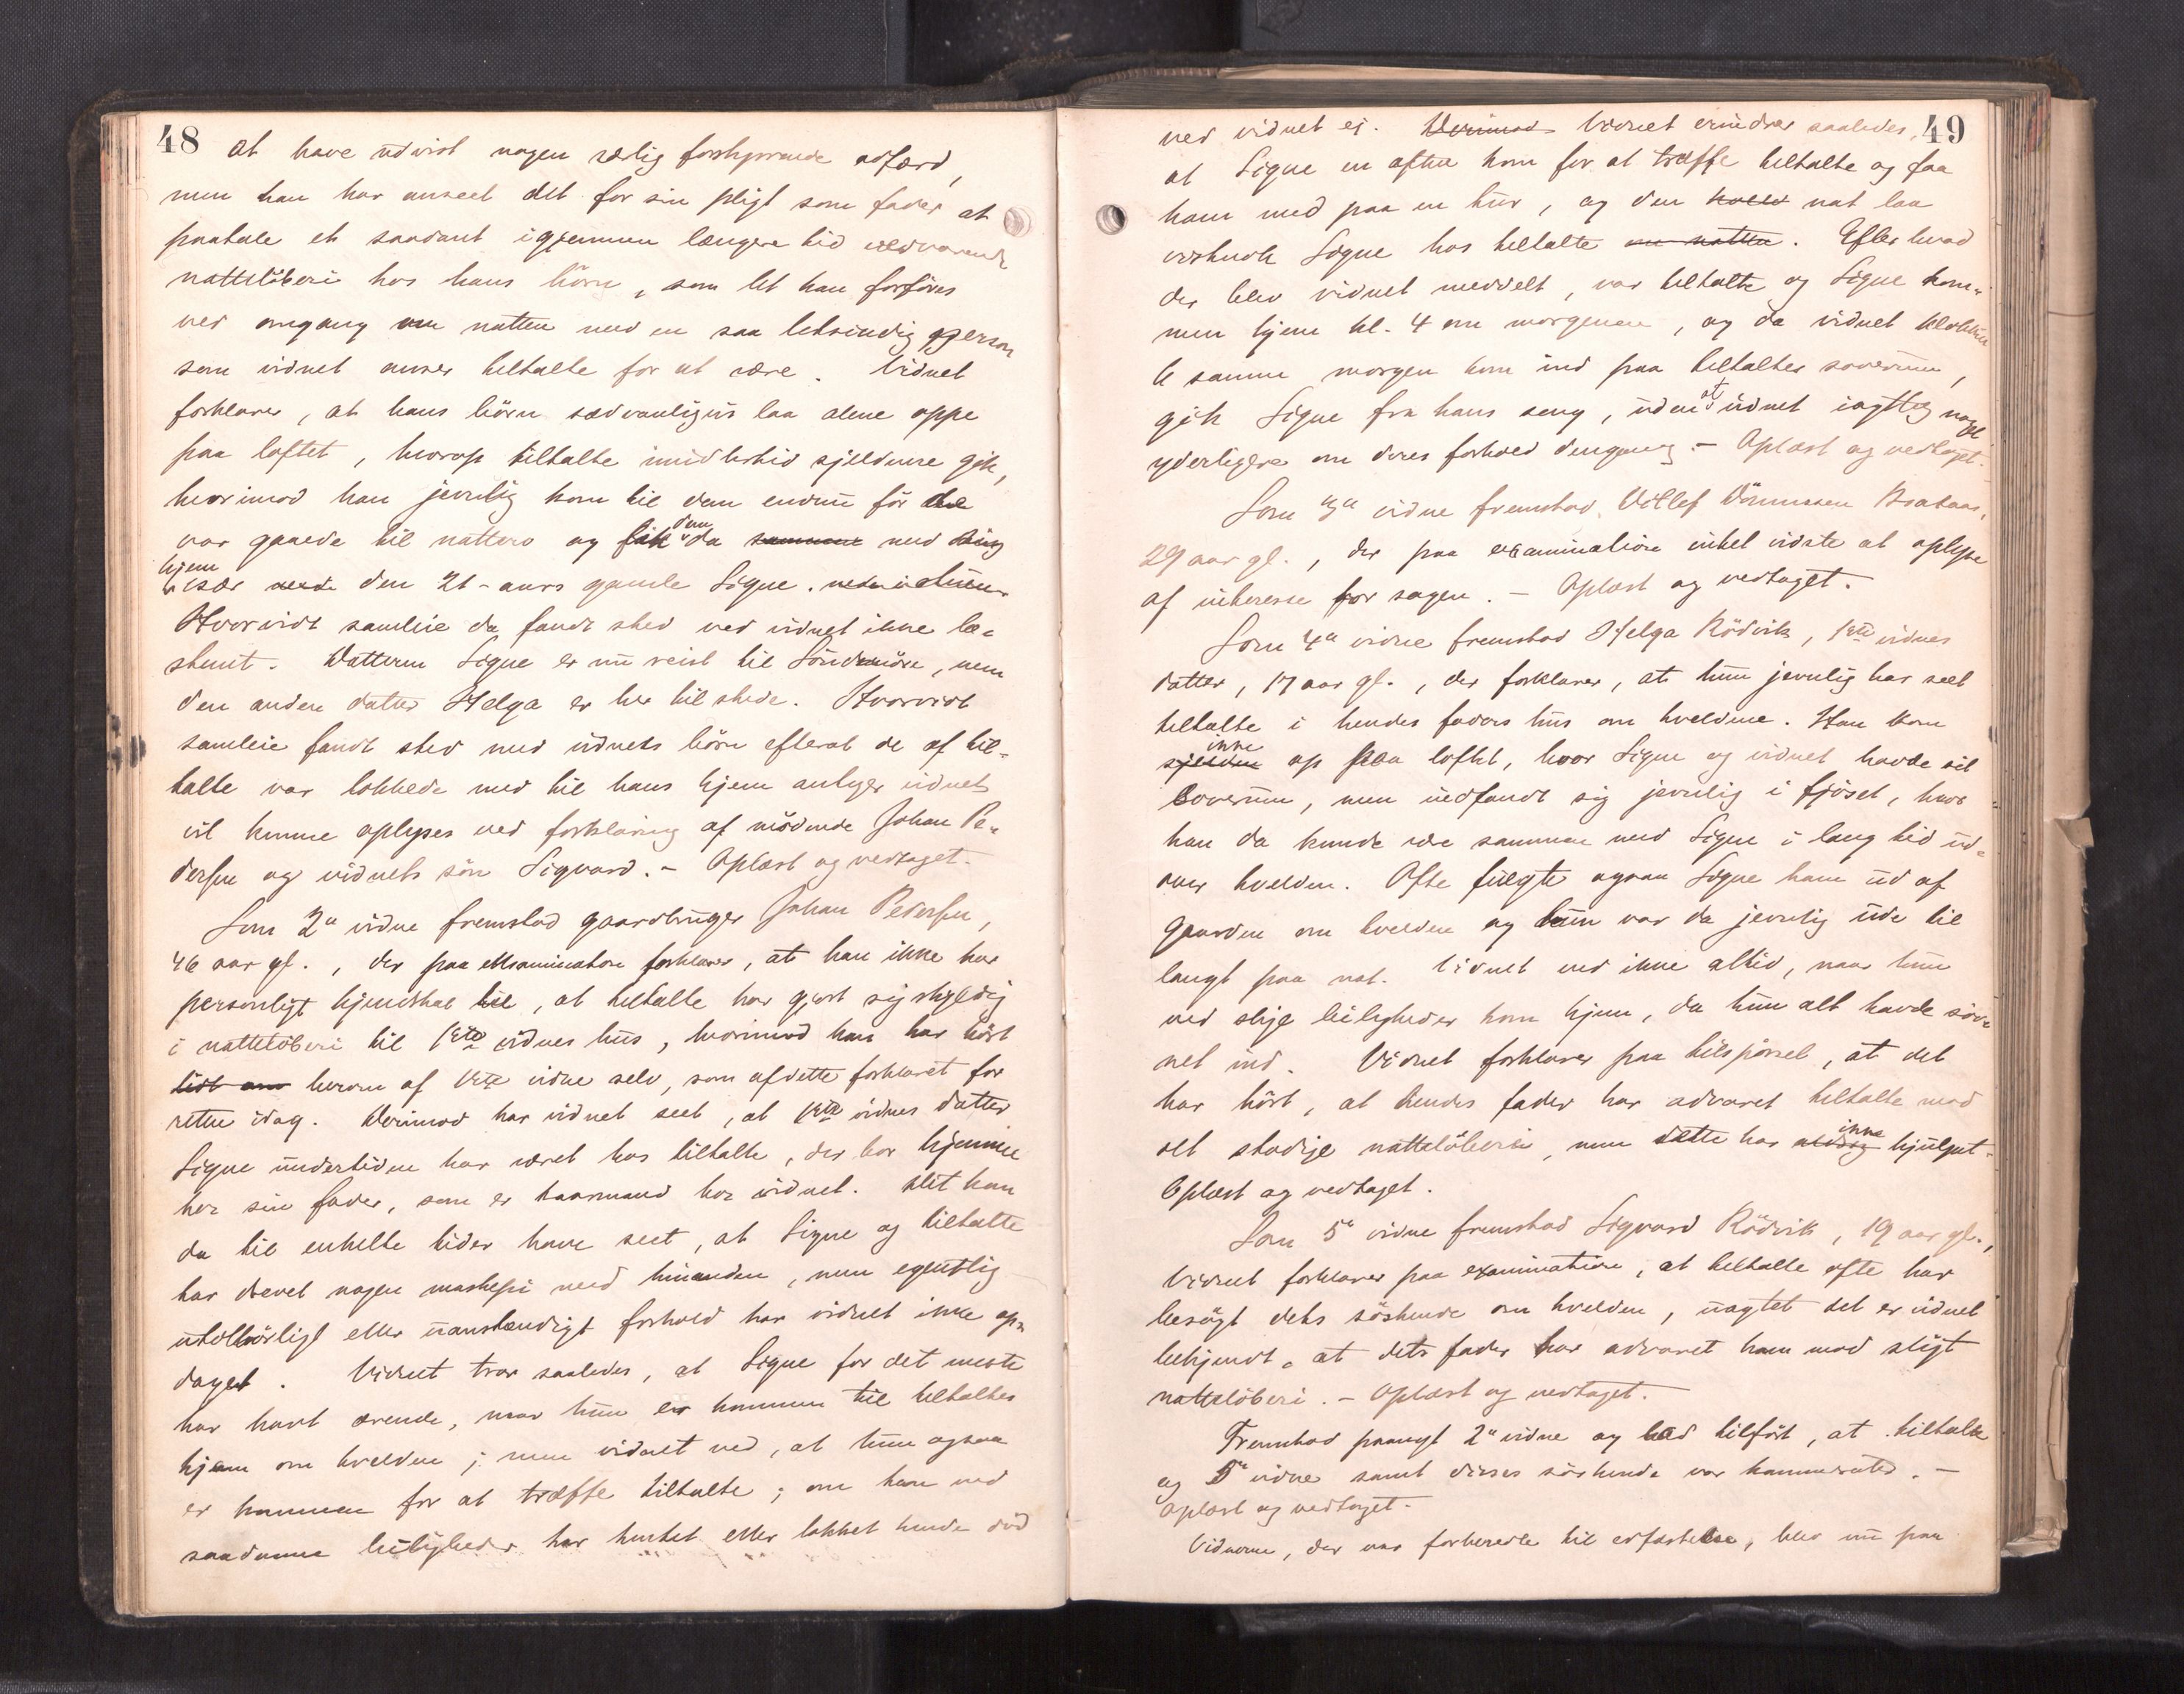 48
at have udvist nogen særlig forstyrrende adfærd,
men han har anseet det for sin pligt som fader at
paatale et saadant igjennem længere tid vedvarende
natteløberi hos hans børn, som let kan forføres
ved omgang om natten med en saa letsindig person
som vidnet anser tiltalte for at være. Vidnet
forklarer, at hans börn sædvanligvis laa alene oppe
paa loftet, hvorop tiltalte imidlertid sjeldnere gik,
hvorimod han jevnlig kom til dem endnu för de
var gaaede til nattero og fik dem da sammen med sig
hjem især med den 21-aars gamle Signe.
Hvorvidt samleie da fandt sted ved vidnet ikke be-
stemt. Datteren Signe er nu reist til Söndmöre, men
den anden datter Helga er her tilstede. Hvorvidt
samleie fandt sted med vidnets börn efterat de af til-
talte var lokkede med til hans hjem antager vidnet
vil kunne oplyses ved forklaring af mödende Johan Pe-
dersen og vidnets sön Sigvard. - Oplæst og vedtaget.
Som 2' vidne fremstod gaardbruger Johan Pedersen,
46 aar gl., der paa examination forklarer, at han ikke har
personligt kjendskab til, at tiltalte har gjort sig skyldig
i natteløberi til 1ste vidnes hus, hvorimod han har hört
lidt om herom af 1ste vidne selv, som af dette forklaret for
retten idag. Derimod har vidnet seet, at 1ste vidnes datter
Signe undertiden har været hos tiltalte, der bor hjemme
hos sin fader, som er kaarmand hos vidnet. Alt kan
da til enkelte tider have seet, at Signe og tiltalte
har drevet nogen maskepi med hinanden, men egentlig
utilbørligt eller uanstændigt forhold har vidnet ikke op-
daget. Vidnet tror saaledes, at Signe for det meste
har havt ærende, naar hun er kommen til tiltaltes
hjem om kvelden; men vidnet ved, at hun ogsaa
er kommen for at træffe tiltalte; om han ved
saadanne leiligheder har hentet eller lokket hende did
49
ved vidnet ej. Derimod Vidnet erindrer saaledes,
at Signe en aften kom for at træffe tiltalte og faa
ham med paa en tur, og den nat laa
Signe hos tiltalte om natten. Efter hvad
der blev vidnet meddelt, var tiltalte og Signe kom-
men hjem kl. 4 om morgenen, og da vidnet klokken
6 samme morgen kom ind paa tiltaltes soverum,
gik Signe fra hans seng, uden at vidnet iagttog noget
yderligere om deres forhold dengang. - Oplæst og vedtaget.
Som 3' vidne fremstod Ditlef Dönnessen Braataas,
29 aar gl., der paa examination intet vidste at oplyse
af interesse for sagen. - Oplæst og vedtaget.
Som 4' vidne fremstod Helga Rödvik, 1ste vidnes
datter, 17 aar gl., der forklarer, at hun jevnlig har seet
tiltalte i hendes faders hus om kveldene. Han kom
sjelden ikke op paa loftet, hvor Signe og vidnet havde sit
soverum, men indfandt sig jevnlig i fjöset, hvor
han da kunde være sammen med Signe i lang tid ud-
over kvelden. Ofte fulgte ogsaa Signe ham ud af
gaarden om kvelden og hun var da jevnlig ude til
langt paa nat. Vidnet ved ikke altid, naar hun
ved slige leiligheder kom hjem, da hun alt havde söv-
net ind. Vidnet forklarer paa tilspørsel, at det
har hört, at hendes fader har advaret tiltalte mod
det stadige natteløberi, men dette har aldrig ikke hjulpet.
Oplæst og vedtaget.
Som 5' vidne fremstod Sigvard Rödvik, 19 aar gl.,
Vidnet forklarer paa examination, at tiltalte ofte har
besögt dets söskende om kvelden, uagtet det er vidnet
bekjendt, at dets fader har advaret ham mod sligt
natteløberi. - Oplæst og vedtaget.
Fremstod paanyt 2' vidne og lod tilföt, at tiltalte
og 5' vidne samt disses söskende var kammerater. -
Oplæst og vedtaget.
Vidnerne, der var forberedte til edfæstelse, blev nu paa